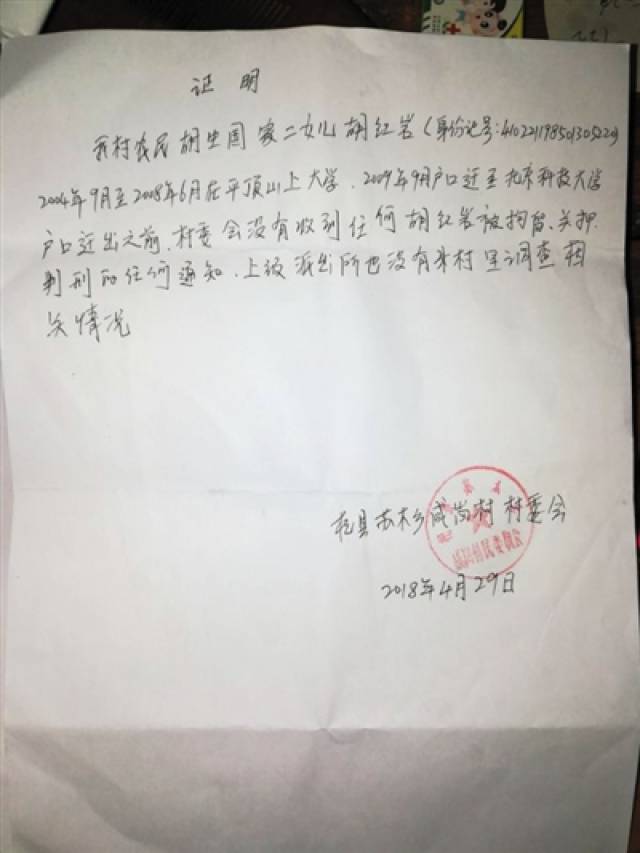 证 明
我村农民胡生国家二女儿胡红岩(身份证号:410221198501305229)
2004年9月至2008年6月在平顶山上大学、2009年9月户口迁至北京科技大学
户口迁出之前,村委会没有收到任何胡红岩被拘留、关押、
判刑的任何通知、上级派出所也没有来村里调查相
关情况
杞县苏木乡咸岗村 村委会
村民委员会
2018年4月29日